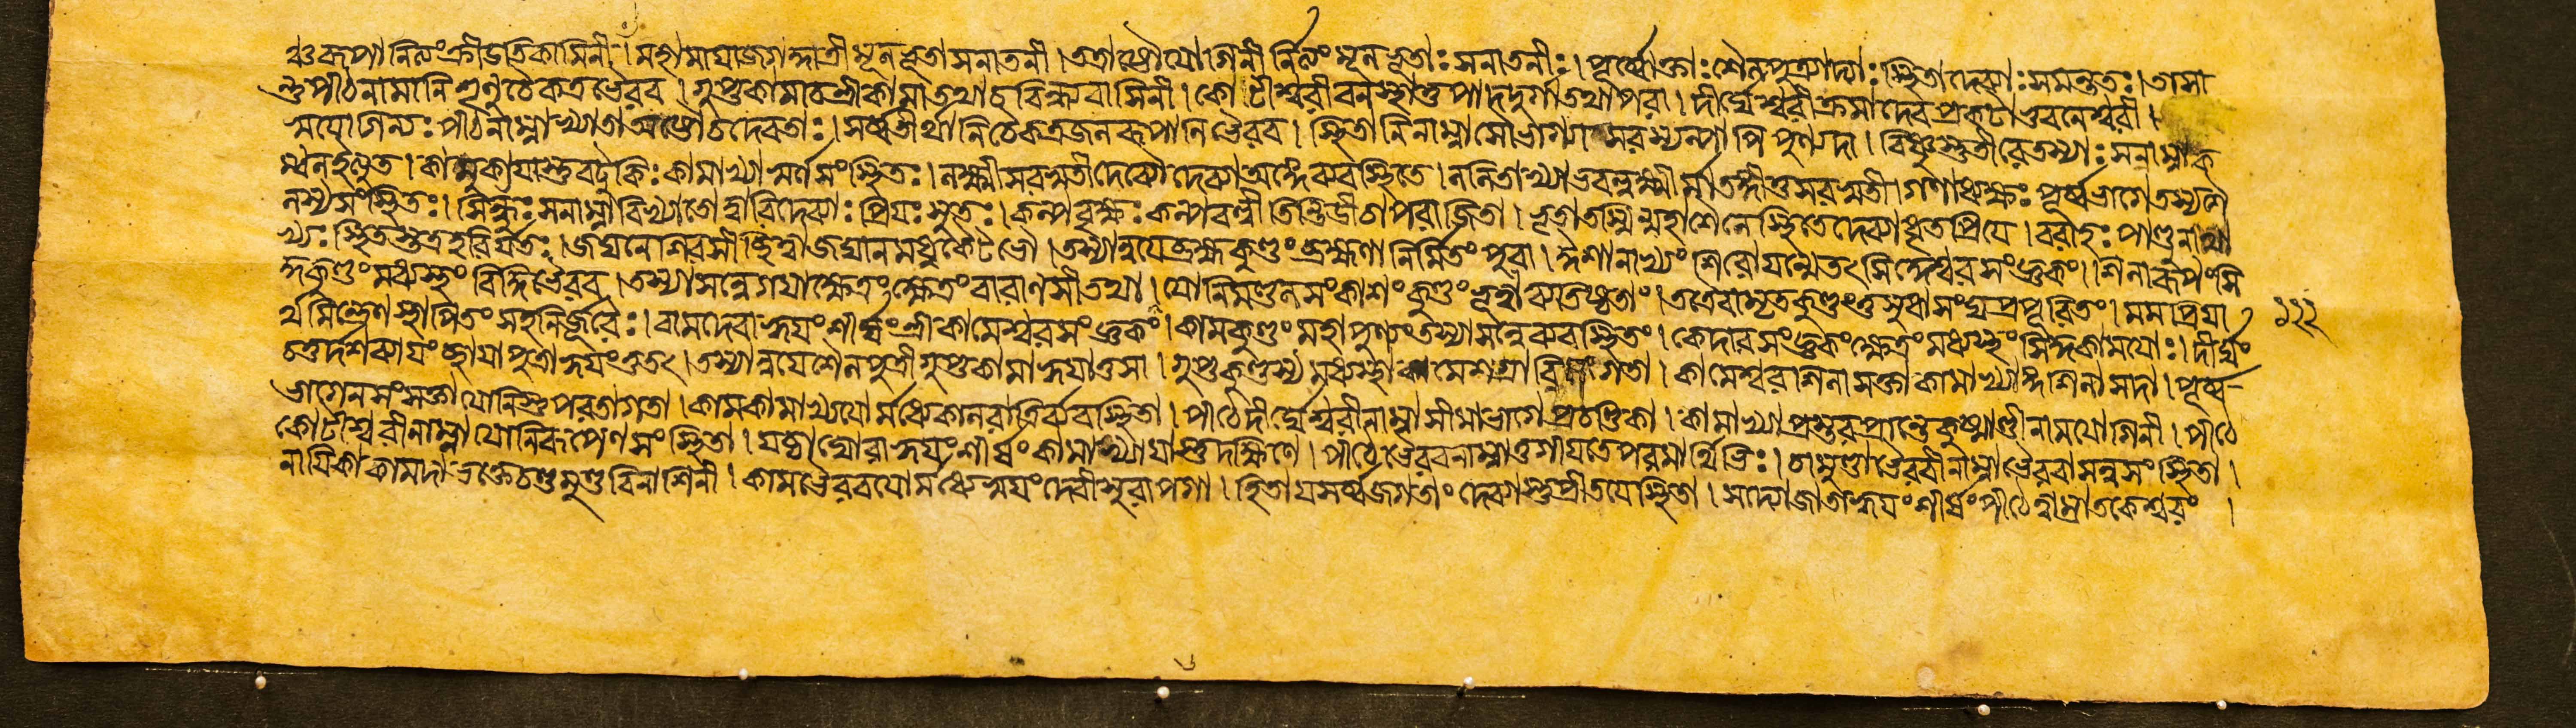 ঞ্চরূপা নিত্যং ক্রীডতি কামিনী । মহামায়া জগদ্ধাত্রী মূলভূতা সনাতনী । অতোঽষ্টৌ যোগিনী র্নিত্যং মূলভূতাঃ সনাতনীঃ । পূর্ব্বোক্তাঃ শৈলপুত্র্যাদ্যাঃ স্থিতা দেব্যাঃ সমন্ততঃ । তাসা
ন্তু পীঠনামানি শৃণু চৈকত্র ভৈরব । গুপ্তকামা চ শ্রীকামা তথা চ বিন্ধ্যবাসিনী । কোটীশ্বরী বনস্থা তু পাদদুর্গা তথাপরা । দীর্ঘেশ্বরী ক্রমাদেব প্রকটা ভুবনেশ্বরী ।
স্বযোগিন্যঃ পীঠনাম্না খ্যাতা অষ্টৌ চ দেবতাঃ । সর্ব্বতীর্থানি চৈকত্র জলরূপাণি ভৈরব । স্থিতানি নাম্না সৌভাগ্যা সরস্যল্পাপি পুণ্যদা । বিষ্ণুস্তু তীরে তস্যাঃ স নাম্না ক
মলইত্যুত । কামুকাযাস্তু বটুকিঃ কামাখ্যা সর্গসংস্থিতঃ । লক্ষ্মী সরস্বতী দেব্যৌ দেব্যা অঙ্গে ব্যবস্থিতে । ললিতাখ্যাভবল্লক্ষ্মী র্মাতঙ্গী তু সরস্বতী । গণাধ্যক্ষঃ পূর্ব্বভাগে তস্য শৈ
লস্য সংস্থিতঃ । সিদ্ধঃ স নাম্না বিখ্যাতো দ্বারি দেব্যাঃ প্রিযঃ সুতঃ । কল্পবৃক্ষঃ কল্পবল্লী তিন্তিডী চাপরাজিতা । ভূতা তস্মিন্মহাশৈলে স্থিতে দেব্যা ধৃতপ্রিযে । বরাহঃ পাণ্ডুনাথা
খ্যঃ স্থিতস্তত্র হরির্যতঃ । জঘনে শিরসী স্থিত্বা জঘান মধুকৈটভৌ । তস্যাসন্নে ব্রহ্মকুণ্ডং ব্রহ্মণা নির্মিতং পুরা । ঈশানাখ্যং শিরো যন্মে তৎ সিদ্ধেশ্বরসংজ্ঞকং । শিলারূপং সি
দ্ধকুণ্ডং মধ্যস্থং বিদ্ধি ভৈরব । তস্যাসন্নে গযাক্ষেত্রং ক্ষেত্রং বারাণসী তথা । যোনিমণ্ডলসংকাশং কুণ্ডং ভূত্বা ব্যতিষ্ঠতাং । তত্রৈবামৃতকুণ্ডং তু সুধাসংঘপ্রপূরিতং । মমাপ্রিযা
র্থমিন্দ্রেণ স্থাপিতং সহ নির্জরৈঃ । বামদেবাহ্বযং শীর্ষং শ্রীকামেশ্বরসংজ্ঞকং । কামকুণ্ডং মহাপুণ্যং তস্যাসন্নে ব্যবস্থিতং । কেদারসংজ্ঞকং ক্ষেত্রং মধ্যস্থং সিদ্ধকামযোঃ । দীর্ঘং
চতুর্দশব্যাযং ছাযাপুত্রাহ্বযং তু তৎ । তস্যাসন্নে শৈলপুত্রী গুপ্তকামাহ্বযা তু সা । গুপ্তকুণ্ডস্য মধ্যস্থা কামেশগ্রাবিসংগতা । কামেশ্বরীশিলাসক্তা কামাখ্যাঙ্গশিলা সদা । পূর্ব্ব-
ভাগেন সংসক্তা যোনিস্তুপরতাগতা । কামকামাখ্যযোর্মধ্যে কালরাত্রির্ব্যবস্থিতা । পীঠে দীর্ঘেশ্বরী নাম্না সীমাভাগে প্রচণ্ডিকা । কামাখ্যাপ্রস্তরপ্রান্তে কুষ্মাণ্ডী নাম যোগিনী । পীঠে
কোটীশ্বরী নাম্না যোনিরূপেণ সংস্থিতা । যদ্বাঘোরাহ্বযং শীর্ষং কামাখ্যাযাস্তু দক্ষিণে । পীঠে ভৈরবনাম্না তু গীযতে পরমার্থিভিঃ । চামুণ্ডা ভৈরবী নাম্না ভৈরবাসন্নসংস্থিতা ।
নাযিকা কামদা ভক্তে চণ্ডমুণ্ডবিনাশিনী । কামভৈরবযোর্মধ্যে স্বযং দেবী সুরাপগা । হিতায সর্ব্বজগতাং দেব্যাস্তু প্রীতযে স্থিতা । সদ্যোজাতাহ্বযং শীর্ষং পীঠে ত্বাম্রাতকেশ্বরং ।
১২২